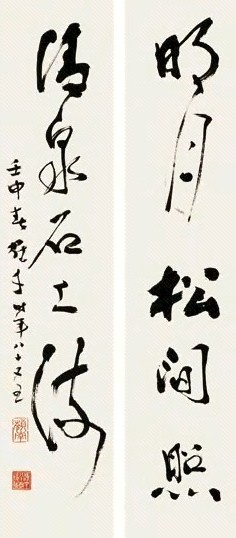 明月松间照
清泉石上流
壬申春 年八十又五